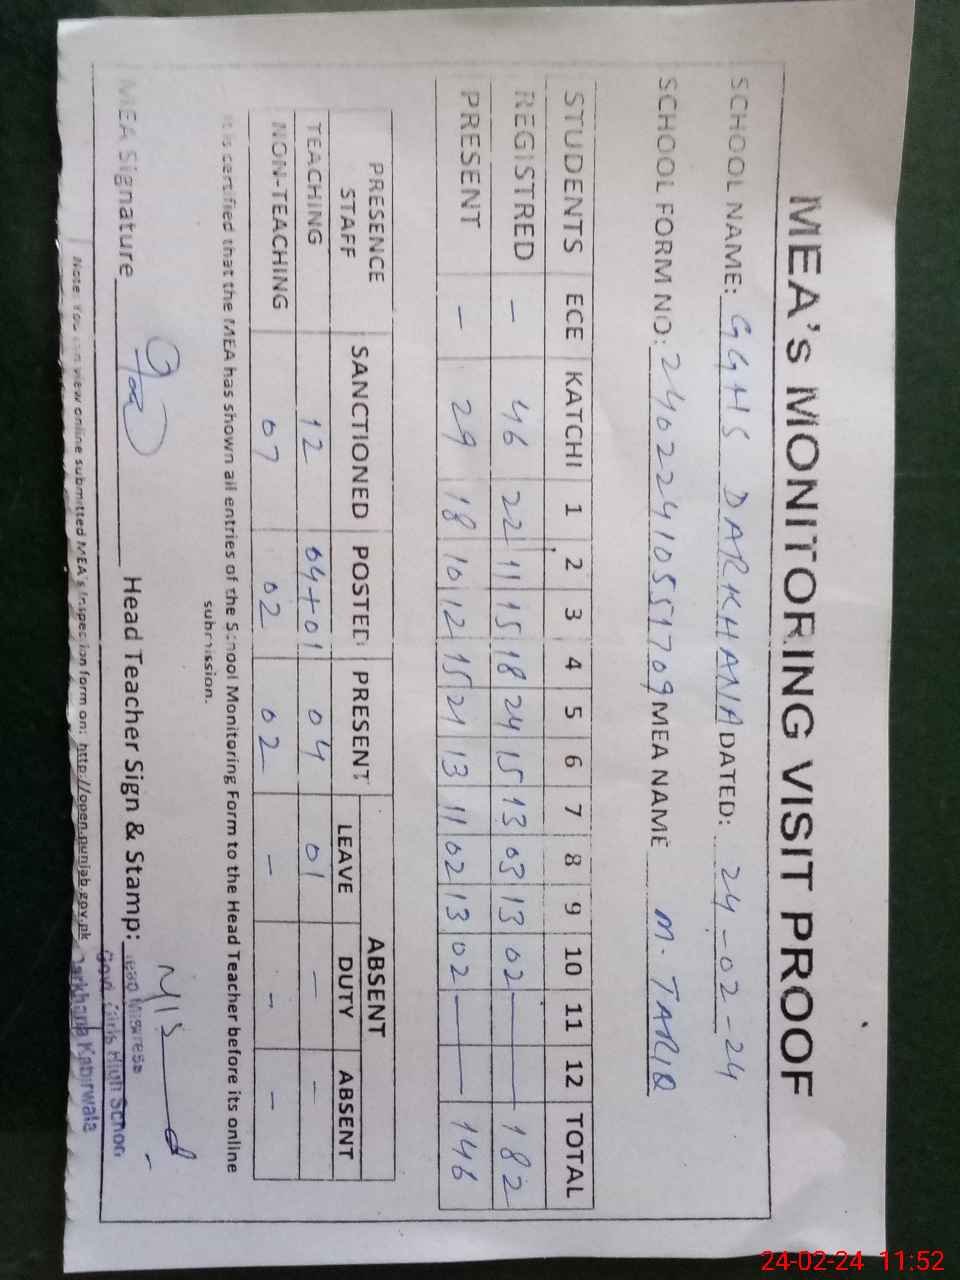 MEA's MONITORING VISIT PROOF
SCHOOL NAME: GGHS DARKHANA DATED: 24-02-24
SCHOOL FORM NO: 24022410551709 MEA NAME M. TARIQ
STUDENTS ECE KATCHI 1 2 3 4 5 6 7 8 9 10 11 12 TOTAL
REGISTRED - 46 22 11 15 18 24 15 13 03 13 02 — — 182
PRESENT - 29 18 10 12 15 21 13 11 02 13 02 — — 146
PRESENCE STAFF SANCTIONED POSTED PRESENT ABSENT
LEAVE DUTY ABSENT
TEACHING 12 04+01 04 01 - -
NON-TEACHING 07 02 02 - - -
It is certified that the MEA has shown all entries of the School Monitoring Form to the Head Teacher before its online
submission.
MEA Signature Head Teacher Sign & Stamp:
Head Mistress
Govt Girls High School
Darkhana Kabirwala
Note: You can view online submitted MEA's Inspection form on: http://open.punjab.gov.pk
24-02-24 11:52